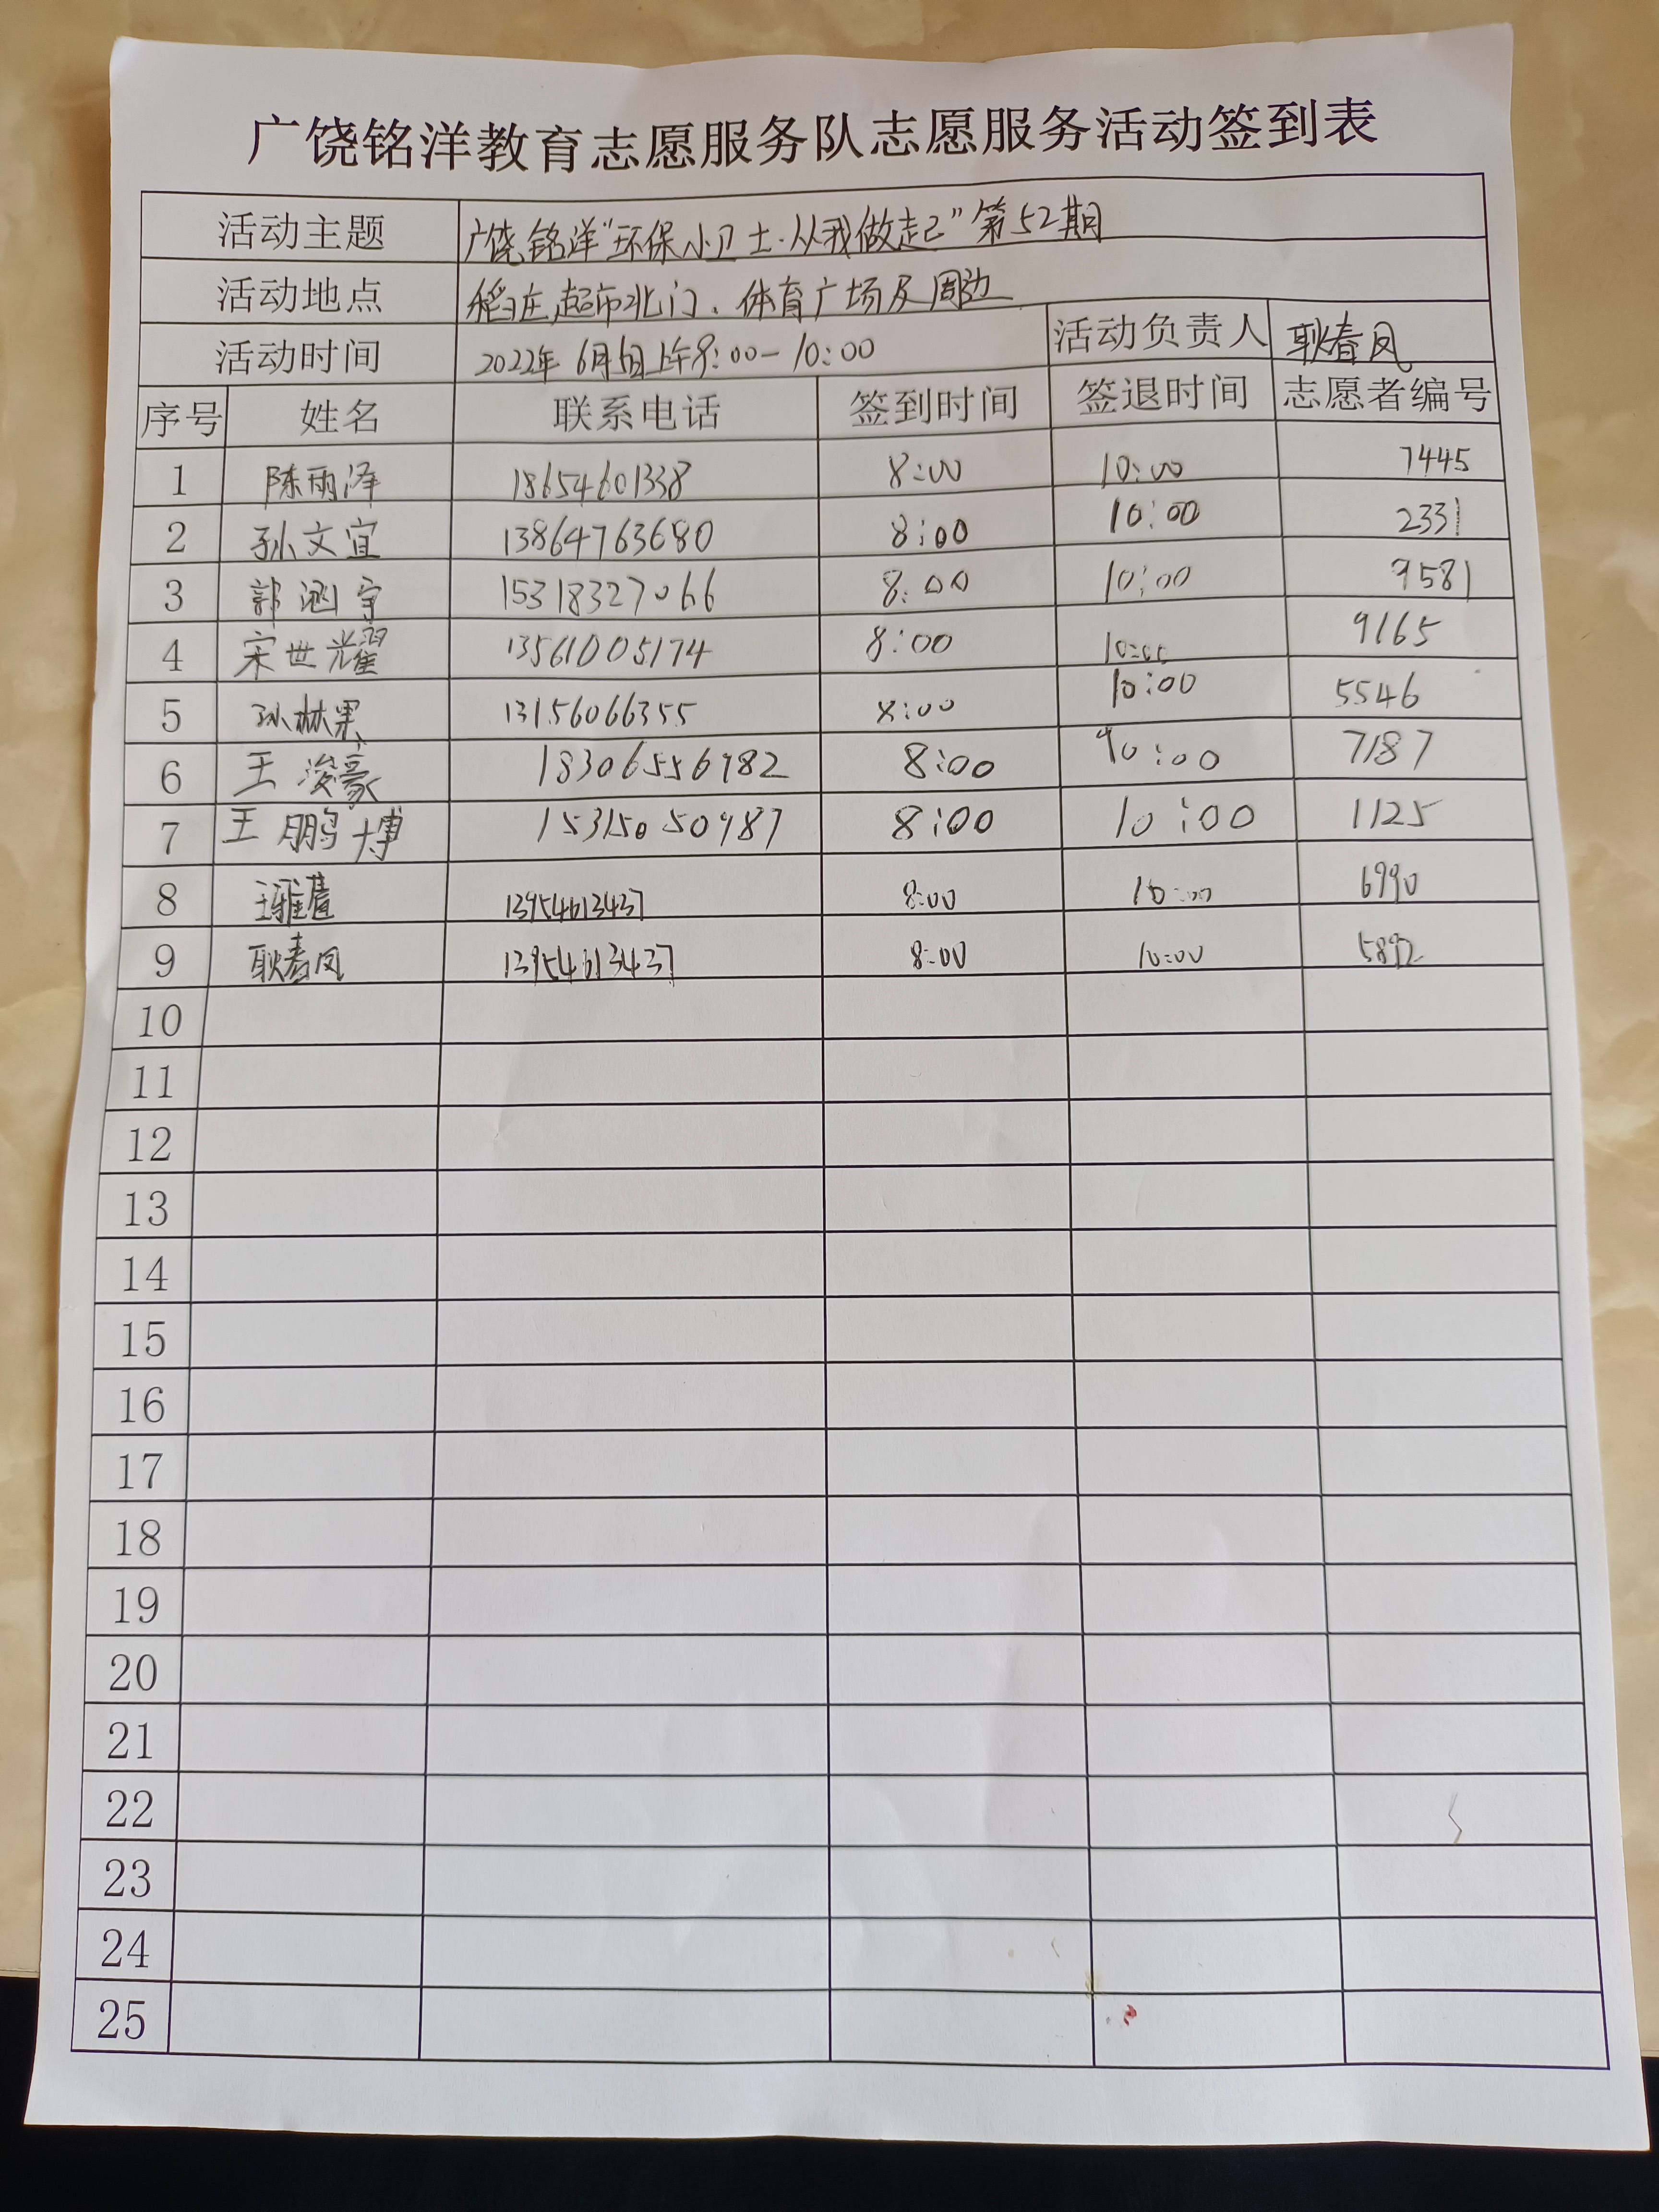 广饶铭洋教育志愿服务队志愿服务活动签到表
活动主题 广饶铭洋“环保小卫士·从我做起”第52期
活动地点 稻庄超市北门、体育广场及周边
活动时间 2022年6月 上午8:00-10:00 活动负责人 耿春凤
序号 姓名 联系电话 签到时间 签退时间 志愿者编号
1 陈雨泽 18654601338 8:00 10:00 7445
2 孙文宜 13864763680 8:00 10:00 2331
3 郭涵宇 15318327066 8:00 10:00 9581
4 宋世耀 13561005174 8:00 10:00 9165
5 孙林果 13156066355 8:00 10:00 5546
6 王浚豪 18306556982 8:00 10:00 7187
7 王鹏博 15315050987 8:00 10:00 1125
8 王雅 13954613437 8:00 10:00 6990
9 耿春凤 13954613437 8:00 10:00 5892
10
11
12
13
14
15
16
17
18
19
20
21
22
23
24
25